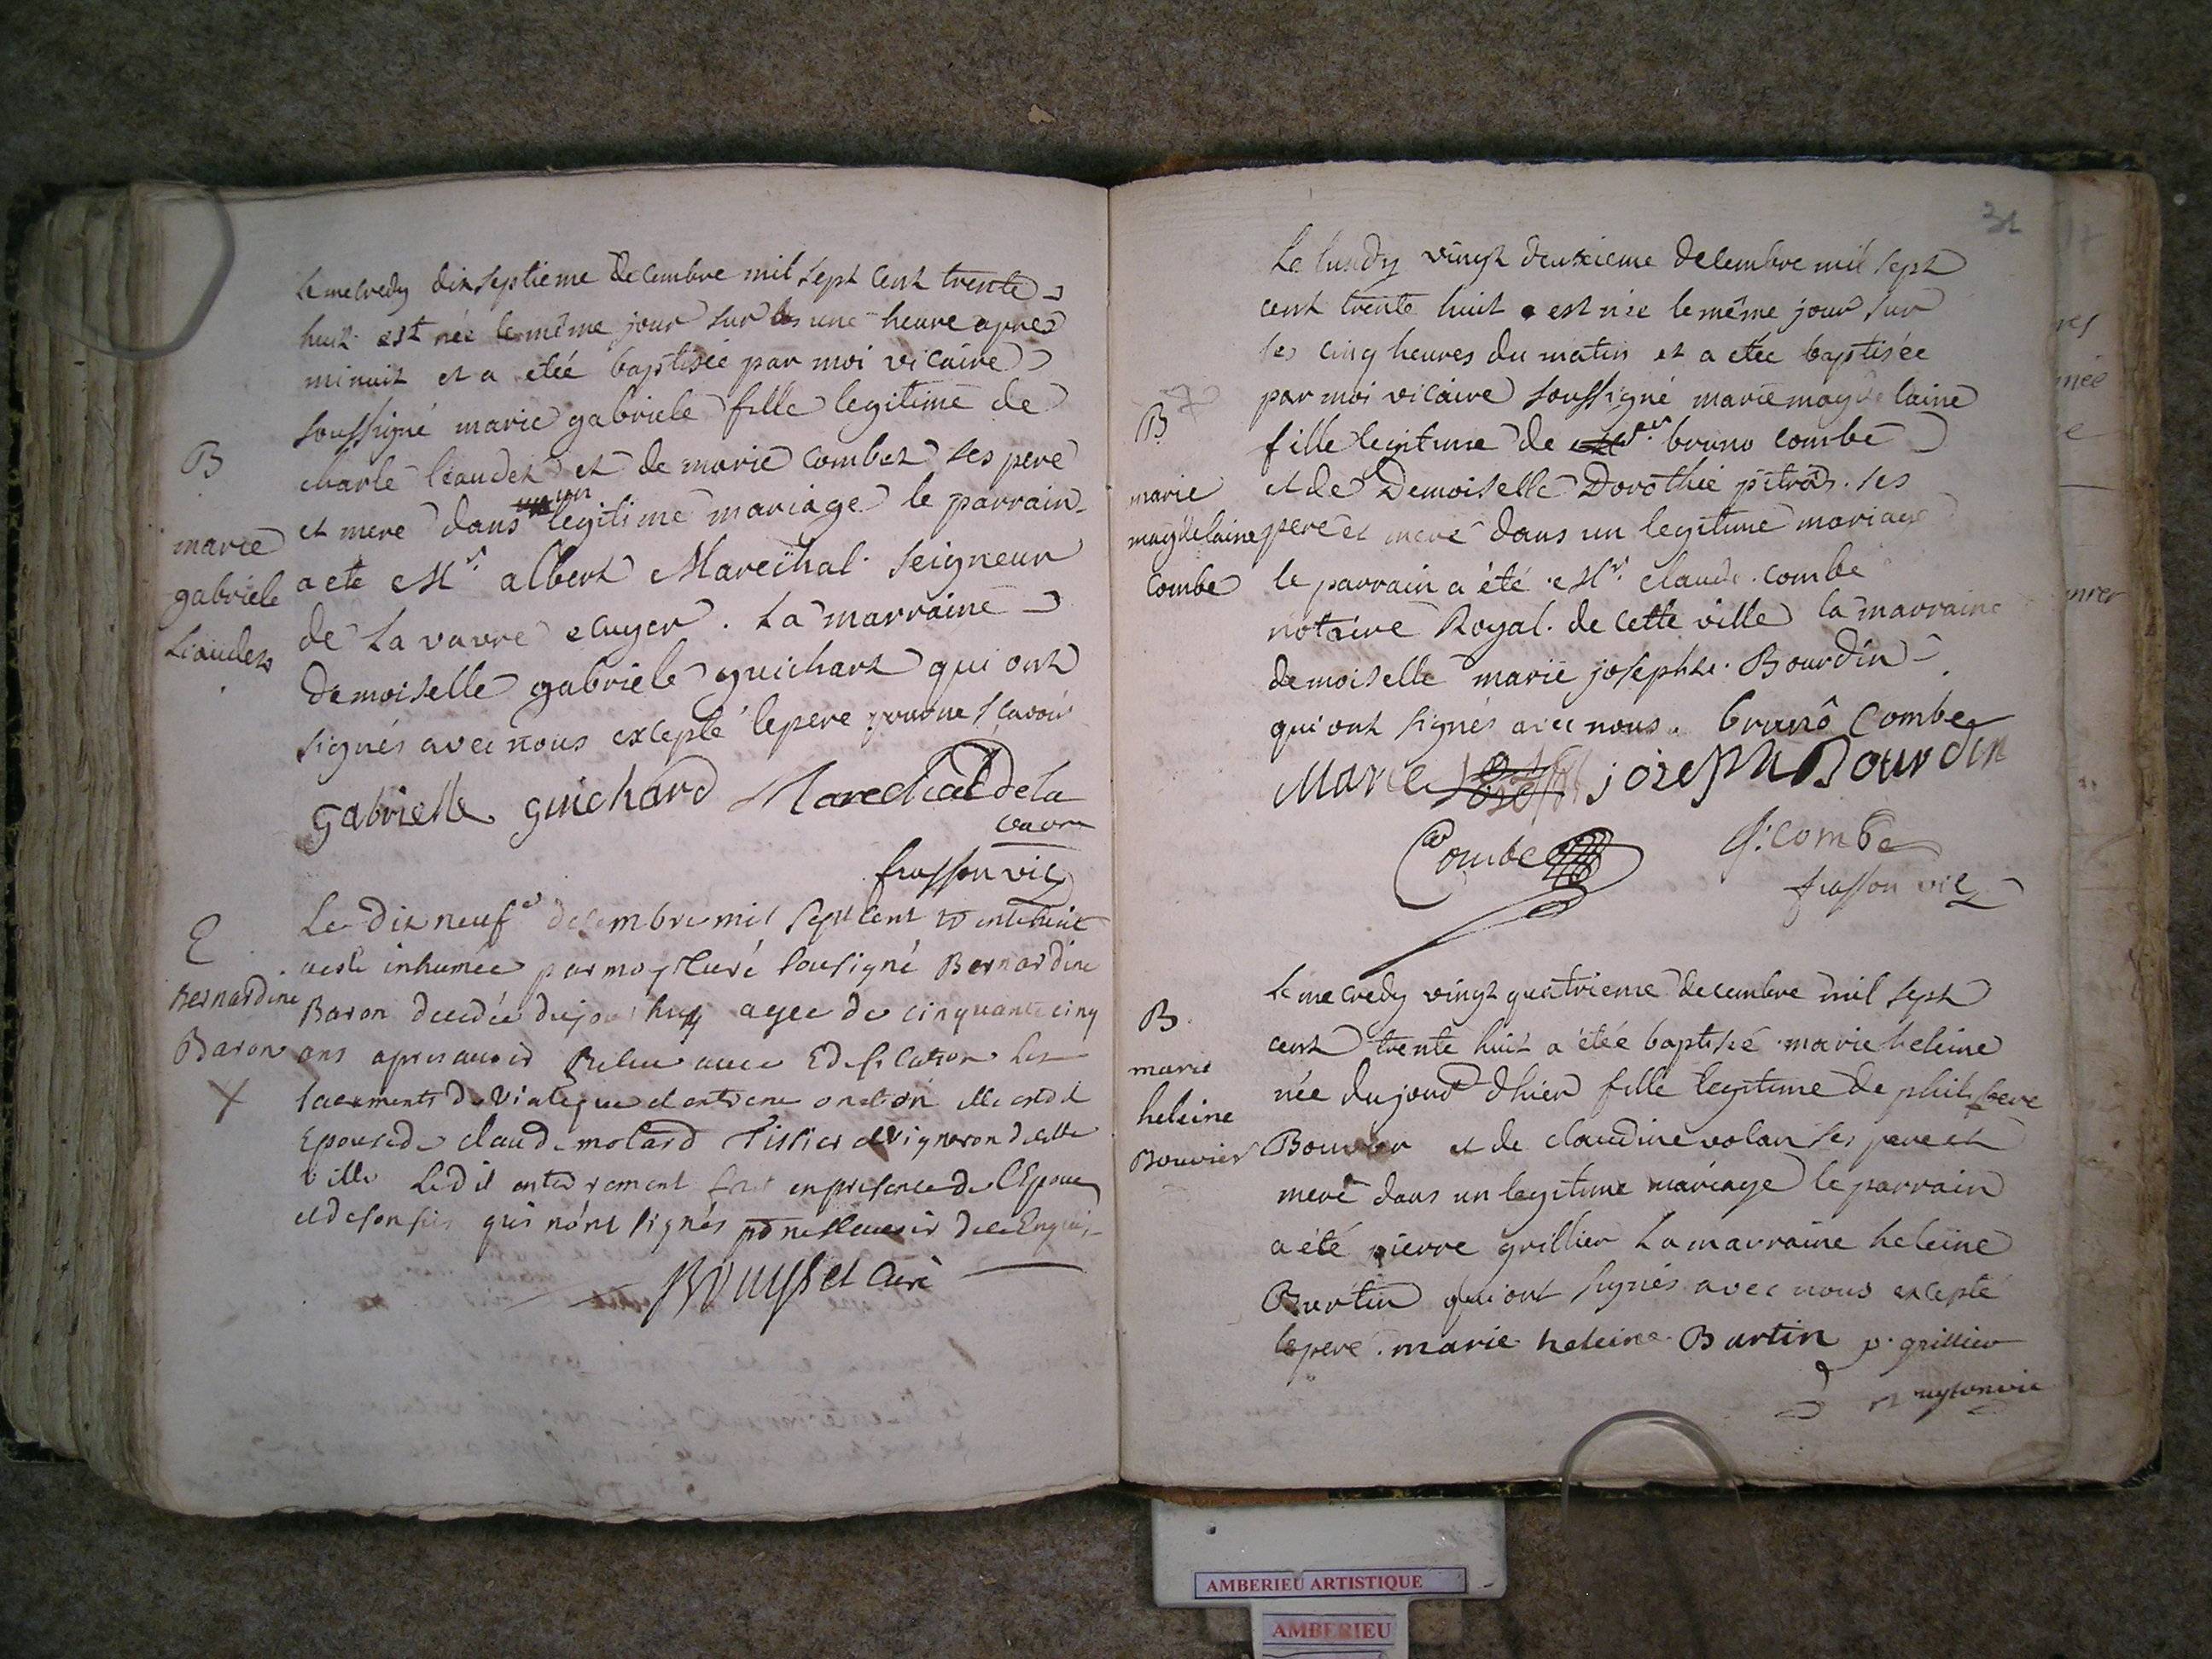 Le mecredy dix septieme decembre mil sept cent trente
huit est née le même jour sur les une heure apres
minuit et a etée baptisée par moi vicaire
soussigné marie gabriele fille legitime de
charle leaudet et de marie combet ses pere
et mere dans un legitime mariage le parrain
a ete Mr. albert Marechal seigneur
de La vavre ecuyer. La marraine
demoiselle gabriele guichart qui ont
signés avec nous excepté le pere pour ne scavoir
B
marie
gabriele
Leaudet
gabrielle guichard Marechal de la
vavre
frasson vic
Le dix neufe desembre mil sept cent trente huit
a esté inhumée par moy Curé sousigné Bernardine
Baron decedée du jour huy agee de cinquante cinq
ans apres avoir Resceu avec Edification les
sacrements de viatique et extreme onction elle estoit
Epouse de claude molard Tissier et vigneron de cette
ville Ledit enterrement fait en presence de l'Epoux
et de son fils qui n'ont signés po ne scavoir de ce Enquis
E
Bernardine
Baron
X
Curé
31
Le lundy vingt deuxieme decembre mil sept
cent trente huit est née le même jour sur
les cinq heures du matin et a etée baptisée
par moi vicaire soussigné marie magdelaine
fille legitime de sieur bruno combe
et de Demoiselle Dorothée pitrà ses
pere et mere dans un legitime mariage
le parrain a été Mr. claude combe
notaire Royal de cette ville la marraine
demoiselle marie josephte Bourdin
qui ont signés avec nous. brunô Combe
B
marie
magdelaine
Combe
Marie joseph Bourdin
Combe G: combe
frasson vic
Le mecredy vingt quatrieme decembre mil sept
cent trente huit a étée baptisé marie heleine
née du jour d'hier fille legitime de philippe
Bouvier et de claudine volan ses pere et
mere dans un legitime mariage le parrain
a été pierre grillier La marraine heleine
Burtin qui ont signés avec nous excepté
le pere. marie heleine Burtin p. grillier
B
marie
heleine
Bouvier
AMBERIEU ARTISTIQUE
AMBERIEU